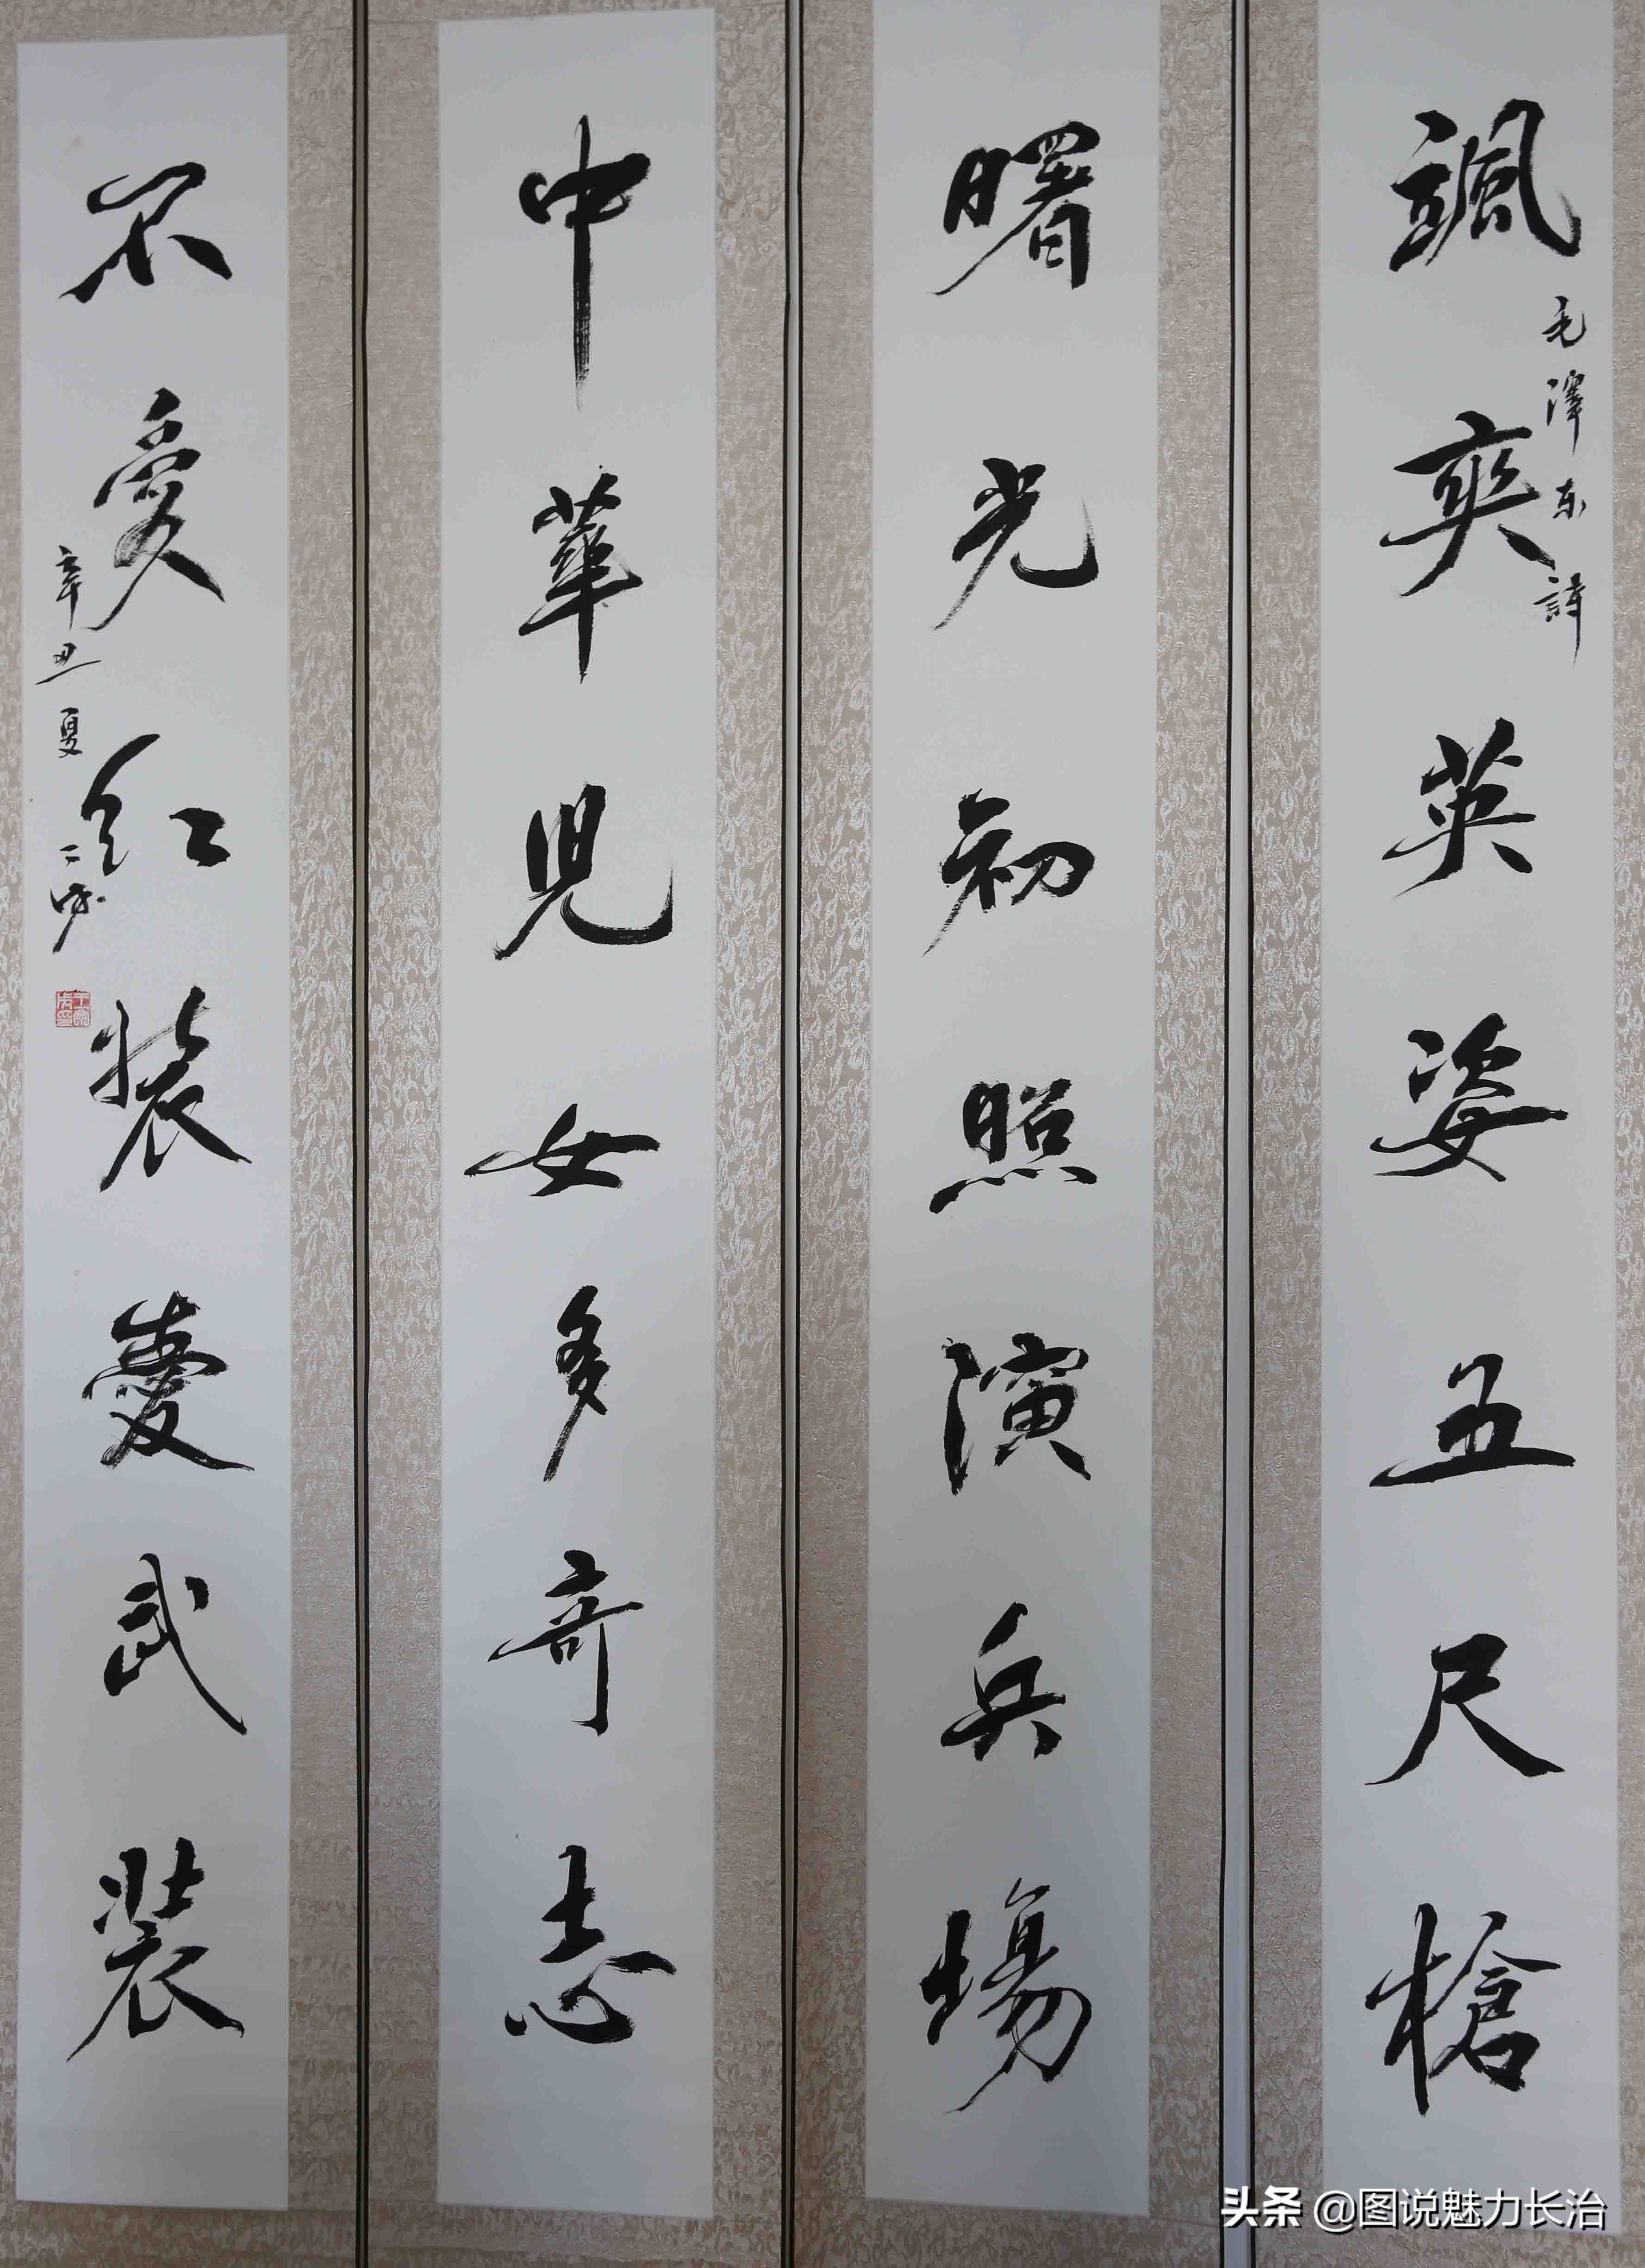 颯爽英姿五尺槍
毛澤东詩
曙光初照演兵場
中華兒女多奇志
不爱红装愛武裝
辛丑夏
头条 @图说魅力长治